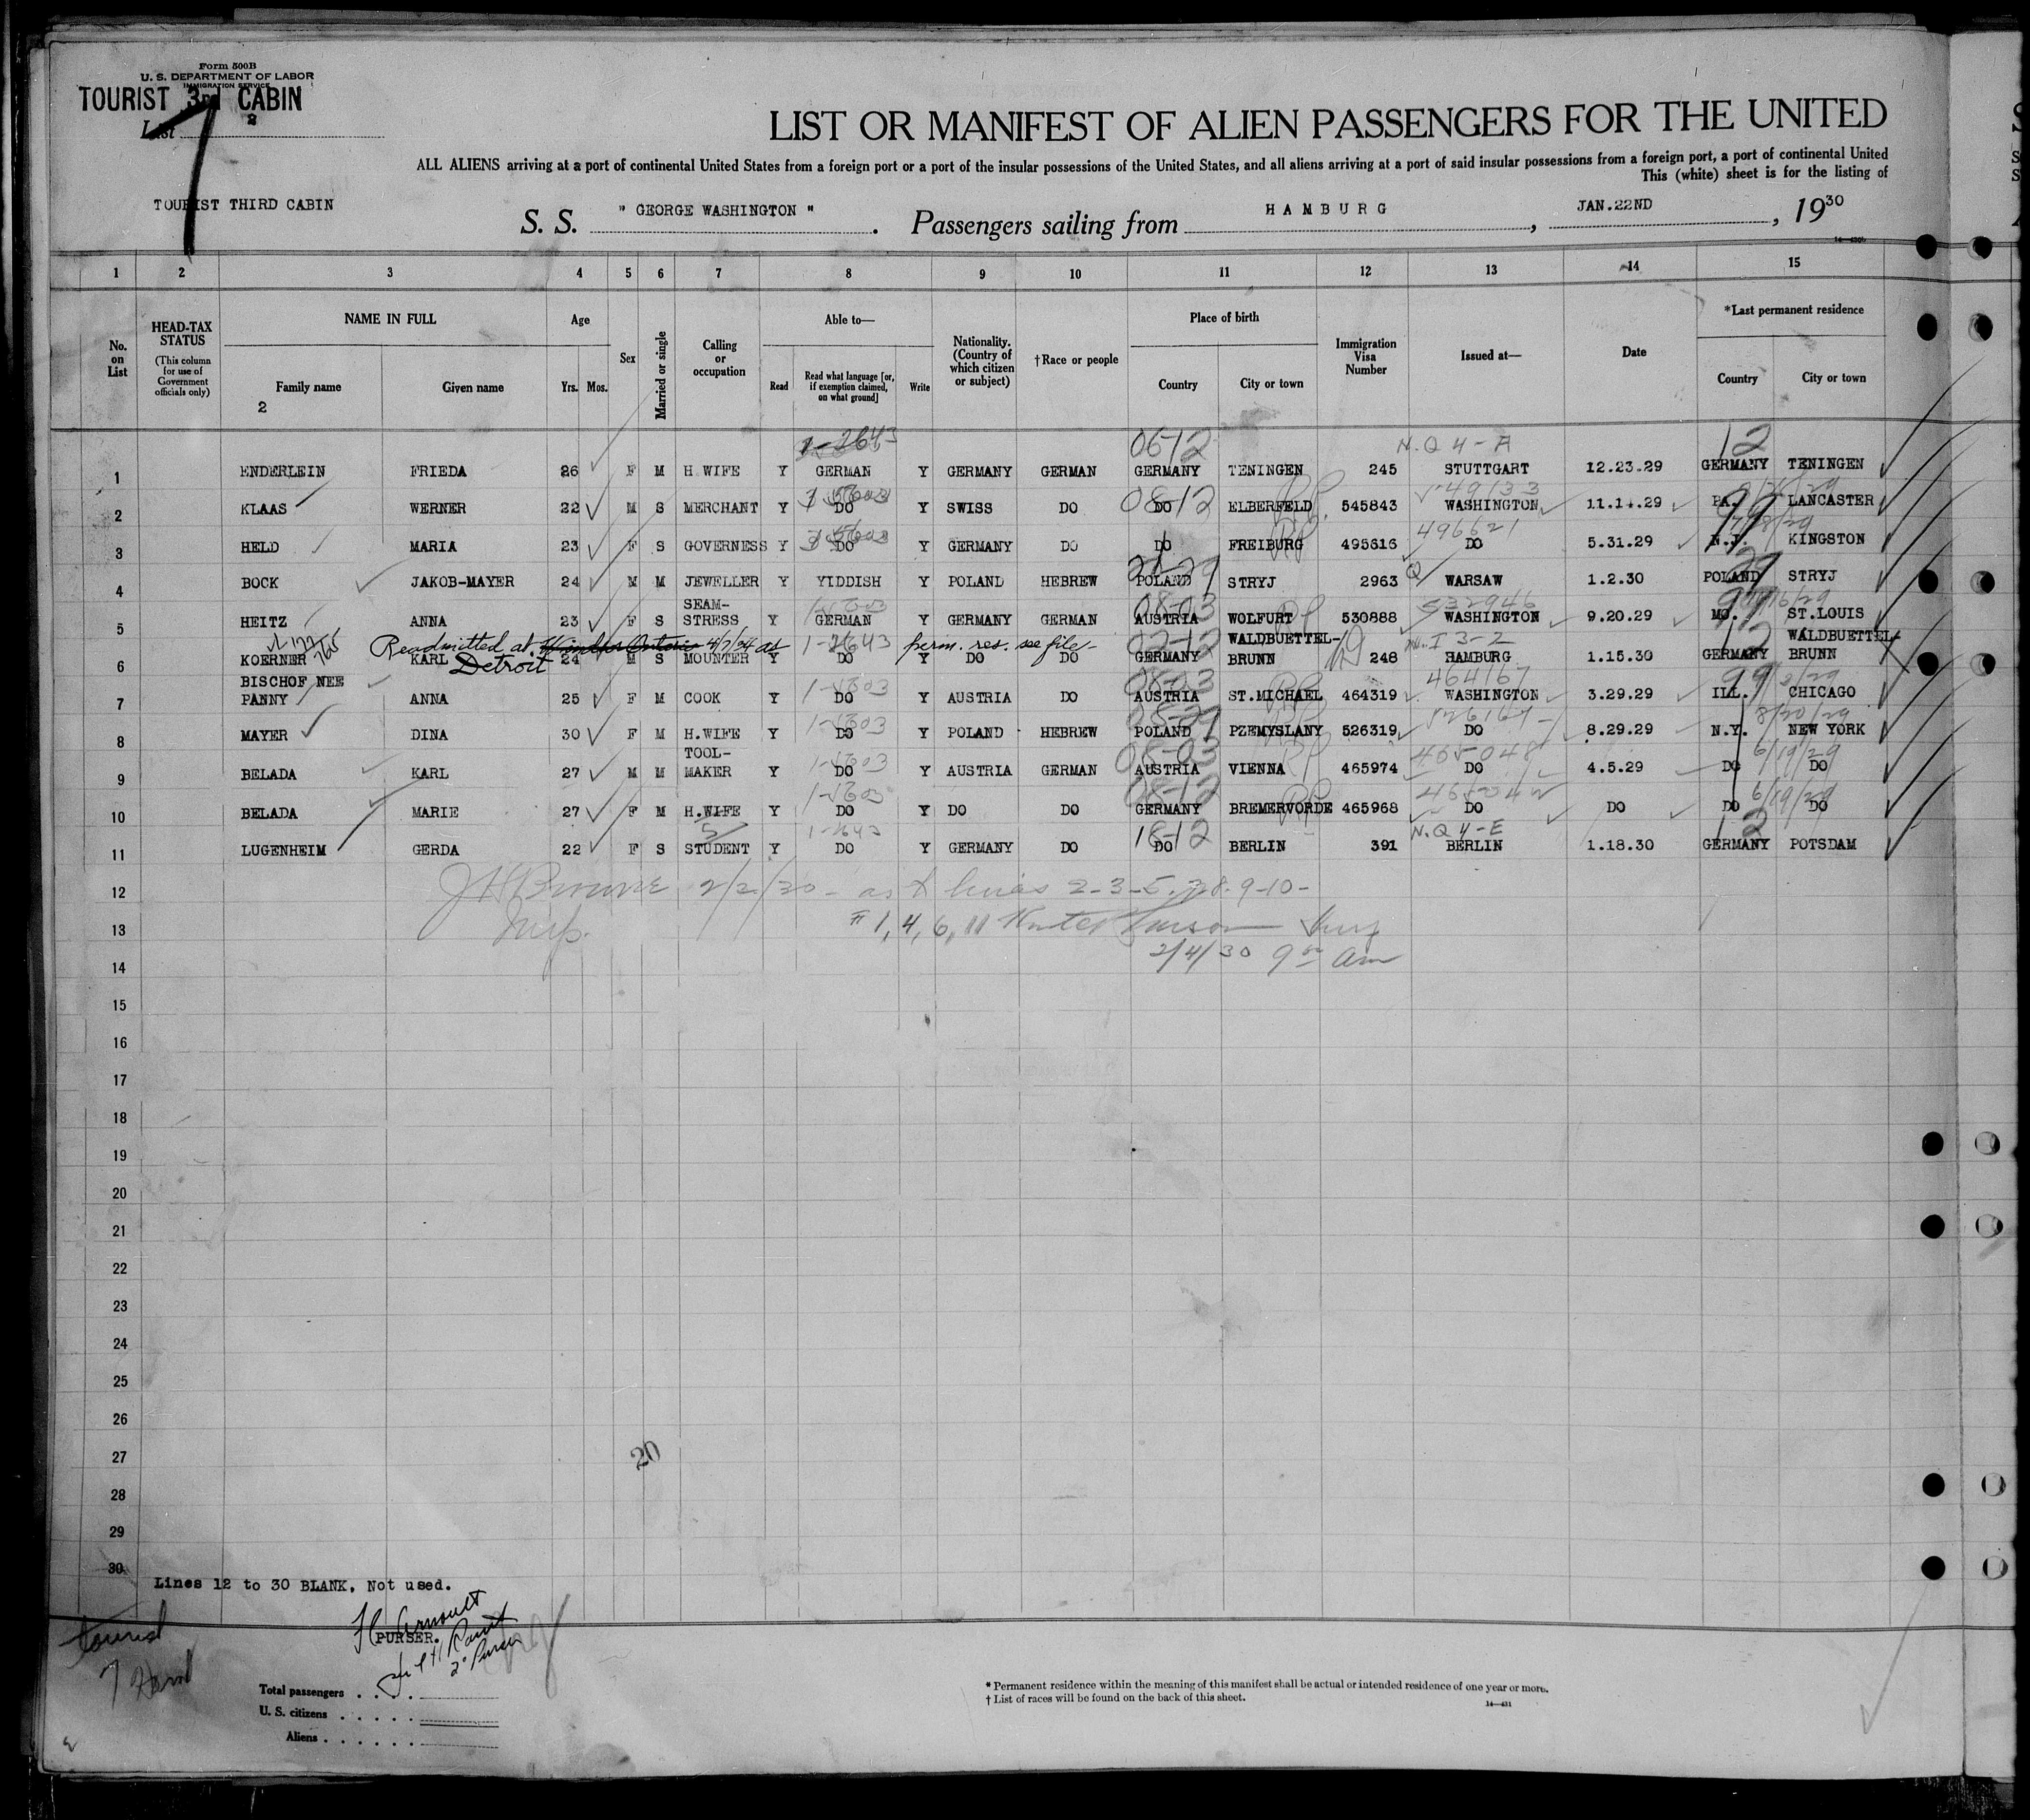 Form 500B
U. S. DEPARTMENT OF LABOR
IMMIGRATION SERVICE
TOURIST 3rd CABIN
List 2
7
LIST OR MANIFEST OF ALIEN PASSENGERS FOR THE UNITED
ALL ALIENS arriving at a port of continental United States from a foreign port or a port of the insular possessions of the United States, and all aliens arriving at a port of said insular possessions from a foreign port, a port of continental United
This (white) sheet is for the listing of
TOURIST THIRD CABIN
S. S. " GEORGE WASHINGTON " . Passengers sailing from HAMBURG , JAN.22ND , 1930
1 2 3 4 5 6 7 8 9 10 11 12 13 14 15
No. on List
HEAD-TAX STATUS (This column for use of Government officials only)
NAME IN FULL Family name Given name
2
Age Yrs. Mos.
Sex
Married or single
Calling or occupation
Able to— Read Read what language [or, if exemption claimed, on what ground] Write
Nationality. (Country of which citizen or subject)
†Race or people
Place of birth Country City or town
Immigration Visa Number
Issued at—
Date
*Last permanent residence Country City or town
1-2643 06-12 N.Q 4-A 12
1 ENDERLEIN FRIEDA 26 F M H.WIFE Y GERMAN Y GERMANY GERMAN GERMANY TENINGEN 245 STUTTGART 12.23.29 GERMANY TENINGEN
2 KLAAS WERNER 22 M S MERCHANT Y DO Y SWISS DO DO ELBERFELD 545843 WASHINGTON 11.14.29 PA. LANCASTER
08-12 549133
496621
3 HELD MARIA 23 F S GOVERNESS Y DO Y GERMANY DO DO FREIBURG 495616 DO 5.31.29 N.J. KINGSTON
4 BOCK JAKOB-MAYER 24 M M JEWELLER Y YIDDISH Y POLAND HEBREW POLAND STRYJ 2963 WARSAW 1.2.30 POLAND STRYJ
08-03 532946
5 HEITZ ANNA 23 F S SEAM-STRESS Y GERMAN Y GERMANY GERMAN AUSTRIA WOLFURT 530888 WASHINGTON 9.20.29 MO. ST.LOUIS
Readmitted at Windsor Ontario 4/7/34 as perm. res. see file-
Detroit
1-2643 02-12 I 3-2 12
6 KOERNER KARL 24 M S MOUNTER Y DO Y DO DO GERMANY WALDBUETTEL-BRUNN 248 HAMBURG 1.15.30 GERMANY WALDBUETTEL-BRUNN
08-03 464167
7 BISCHOF NEE PANNY ANNA 25 F M COOK Y DO Y AUSTRIA DO AUSTRIA ST.MICHAEL 464319 WASHINGTON 3.29.29 ILL. CHICAGO
8/20/29
8 MAYER DINA 30 F M H.WIFE Y DO Y POLAND HEBREW POLAND PZEMYSLANY 526319 DO 8.29.29 N.Y. NEW YORK
08-03 465048 6/19/29
9 BELADA KARL 27 M M TOOL-MAKER Y DO Y AUSTRIA GERMAN AUSTRIA VIENNA 465974 DO 4.5.29 DO DO
08-12 6/19/29
10 BELADA MARIE 27 F M H.WIFE Y DO Y DO DO GERMANY BREMERVORDE 465968 DO DO DO DO
1-2643 18-12 N.Q 4-E 12
11 LUGENHEIM GERDA 22 F S STUDENT Y DO Y GERMANY DO DO BERLIN 391 BERLIN 1.18.30 GERMANY POTSDAM
12 2/2/30 - as to lines 2-3-5-7-8-9-10-
13 Insp. # 1, 4, 6, 11
14 2/4/30 9 am
15
16
17
18
19
20
21
22
23
24
25
26
27
20
28
29
30
Lines 12 to 30 BLANK. Not used.
PURSER.
tourist
7
Total passengers
U. S. citizens
Aliens
* Permanent residence within the meaning of this manifest shall be actual or intended residence of one year or more.
† List of races will be found on the back of this sheet.
14—431